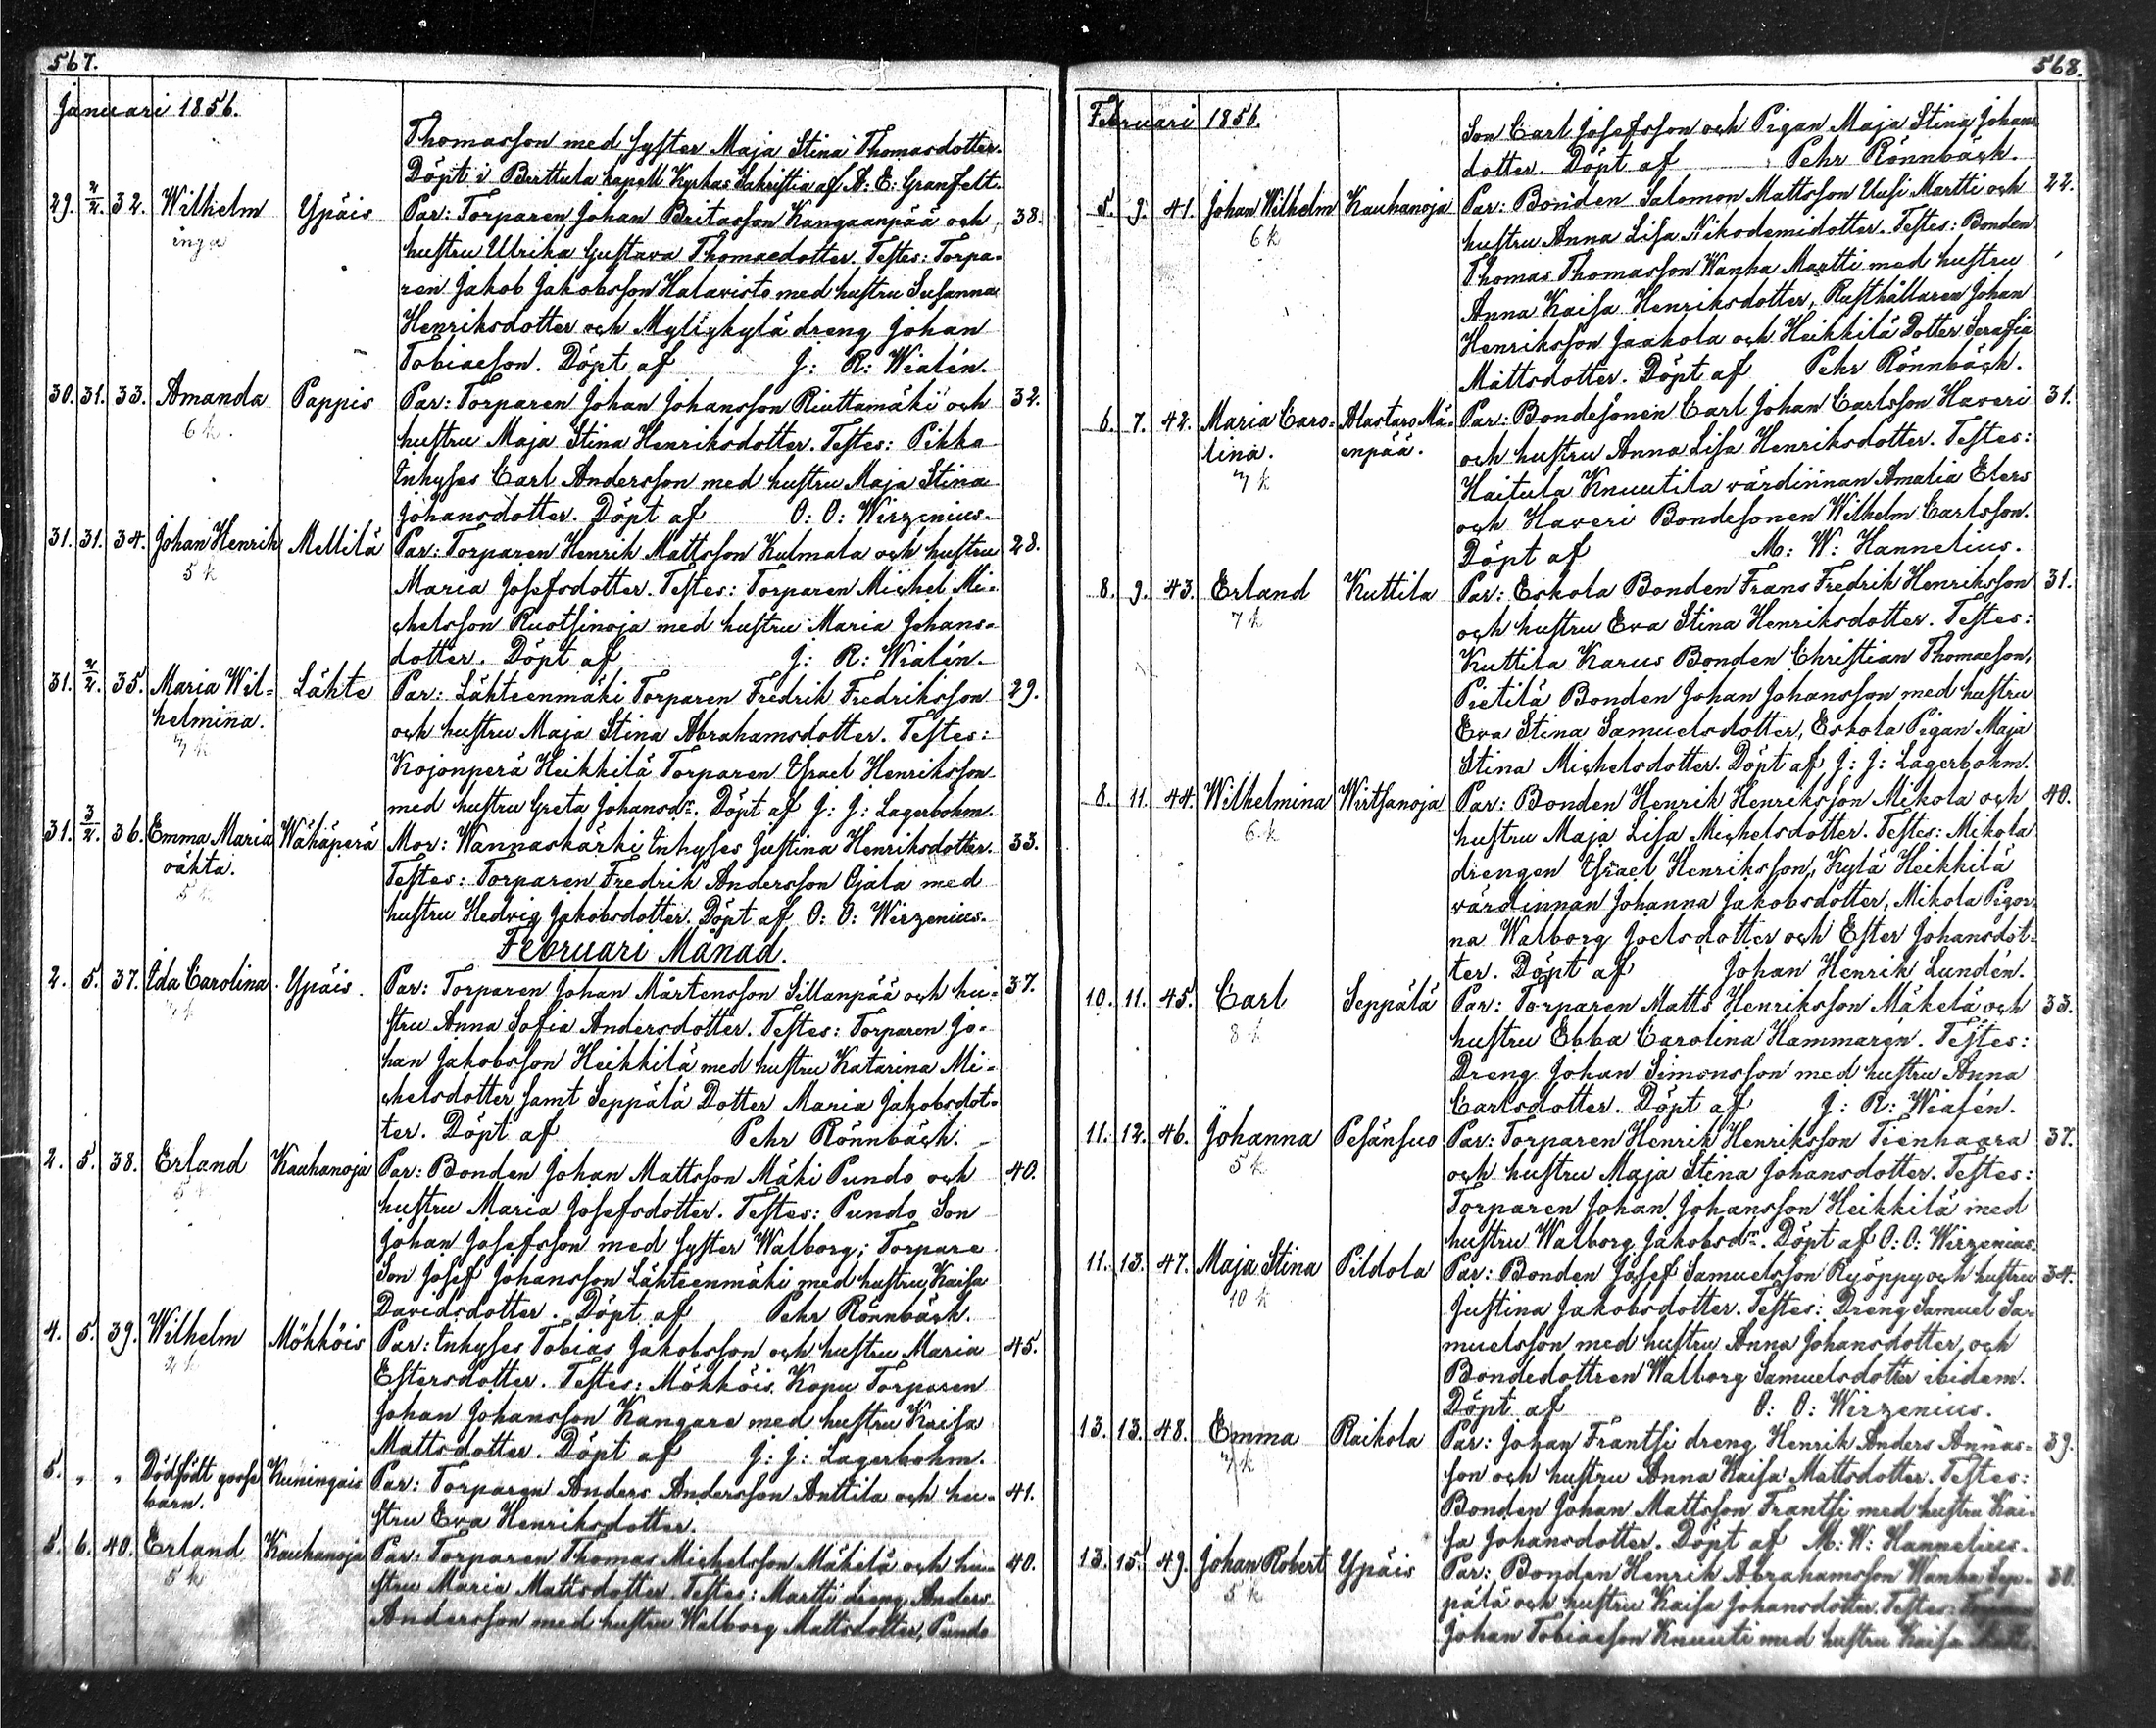 567.
Januari 1856.
Thomasson med syster Maja Stina Thomasdotter.
Döpt i Perttula kapell Kyrkas Sakristia af A: E: Granfelt.
29. 2/2. 32. Wilhelm Ypäis Par: Torparen Johan Britasson Kangaanpää och 38.
inga hustru Ulrika Gustava Thomaedotter. Testes: Torpa-
ren Jakob Jakobsson Halavisto med hustru Susanna
Henriksdotter och Myllykylä dreng Johan
Tobiaeson. Döpt af J: R: Wialén.
30. 31. 33. Amanda Pappis Par: Torparen Johan Johansson Riuttamäki och 32.
6 k. hustru Maja Stina Henriksdotter. Testes: Pikka
Inhyses Carl Andersson med hustru Maja Stina
Johansdotter. Döpt af O: O: Wirzenius.
31. 31. 34. Johan Henrik Mellilä Par: Torparen Henrik Mattsson Kulmala och hustru 28.
5 k Maria Josefsdotter. Testes: Torparen Michel Mi-
chelsson Ruotsinoja med hustru Maria Johans-
dotter. Döpt af J: R: Wialén.
31. 2/2. 35. Maria Wil- Lähte Par: Lähteenmäki Torparen Fredrik Fredriksson 29.
helmina. och hustru Maja Stina Abrahamsdotter. Testes:
7 k Kojonperä Heikkilä Torparen Israel Henriksson
med hustru Greta Johansdr. Döpt af J: J: Lagerbohm.
31. 3/2. 36. Emma Maria Wähäperä Mor: Wannaskärki Inhyses Justina Henriksdotter. 33.
oäkta. Testes: Torparen Fredrik Andersson Ojala med
5 k hustru Hedvig Jakobsdotter. Döpt af O: O: Wirzenius.
Februari Månad.
2. 5. 37. Ida Carolina Ypäis. Par: Torparen Johan Mårtensson Sillanpää och hu- 37.
stru Anna Sofia Andersdotter. Testes: Torparen Jo-
han Jakobsson Heikkilä med hustru Katarina Mi-
chelsdotter samt Seppälä Dotter Maria Jakobsdot-
ter. Döpt af Pehr Rönnbäck.
2. 5. 38. Erland Kauhanoja Par: Bonden Johan Mattsson Mäki Pundo och 40.
5 k hustru Maria Josefsdotter. Testes: Pundo Son
Johan Josefsson med syster Walborg; Torpare
Son Josef Johansson Lähteenmäki med hustru Kaisa
Davidsdotter. Döpt af Pehr Rönnbäck.
4. 5. 39. Wilhelm Mökköis Par: Inhyses Tobias Jakobsson och hustru Maria 45.
2 k Estersdotter. Testes: Mökköis Kopu Torparen
Johan Johansson Kangare med hustru Kaisa
Mattsdotter. Döpt af J: J: Lagerbohm.
5. " " Dödfödt gosse Kuningais Par: Torparen Anders Andersson Anttila och hu- 41.
barn. stru Eva Henriksdotter.
5. 6. 40. Erland Kauhanoja Par: Torparen Thomas Michelsson Mäkilä och hu- 40.
5 k stru Maria Mattsdotter. Testes: Martti dreng Anders
Andersson med hustru Walborg Mattsdotter, Pundo
568.
Februari 1856.
Son Carl Josefsson och Pigan Maja Stina Johans
dotter. Döpt af Pehr Rönnbäck.
5. 9. 41. Johan Wilhelm Kauhanoja Par: Bonden Salomon Mattsson Uusi Martti och 22.
6 k hustru Anna Lisa Nikodemidotter. Testes: Bonden
Thomas Thomasson Wanha Martti med hustru
Anna Kaisa Henriksdotter, Rusthållaren Johan
Henriksson Jaakola och Heikkilä Dotter Serafia
Mattsdotter. Döpt af Pehr Rönnbäck.
6. 7. 42. Maria Caro- Alastaro Mä- Par: Bondesonen Carl Johan Carlsson Haveri 31.
lina. enpää. och hustru Anna Lisa Henriksdotter. Testes:
7 k Haitula Knuutila värdinnan Amalia Elers
och Haveri Bondesonen Wilhelm Carlsson.
Döpt af M: W: Hannelius.
8. 9. 43. Erland Kuttila Par: Eskola Bonden Frans Fredrik Henriksson 31.
7 k och hustru Eva Stina Henriksdotter. Testes:
Kuttila Karus Bonden Christian Thomaeson,
Pietilä Bonden Johan Johansson med hustru
Eva Stina Samuelsdotter, Eskola Pigan Maja
Stina Michelsdotter. Döpt af J: J: Lagerbohm.
8. 11. 44. Wilhelmina Wirtsanoja Par: Bonden Henrik Henriksson Mikola och 40.
6 k hustru Maja Lisa Michelsdotter. Testes: Mikola
drengen Israel Henriksson, Kylä Heikkilä
värdinnan Johanna Jakobsdotter, Mikola Pigor-
na Walborg Joelsdotter och Ester Johansdot-
ter. Döpt af Johan Henrik Lundén.
10. 11. 45. Carl Seppälä Par: Torparen Matts Henriksson Mäkelä och 33.
8 k hustru Ebba Carolina Hammarén. Testes:
Dreng Johan Simonsson med hustru Anna
Carlsdotter. Döpt af J: R: Wialén.
11. 12. 46. Johanna Pesänsuo Par: Torparen Henrik Henriksson Tienhaara 37.
5 k och hustru Maja Stina Johansdotter. Testes:
Torparen Johan Johansson Heikkilä med
hustru Walborg Jakobsdr. Döpt af O: O: Wirzenius.
11. 13. 47. Maja Stina Pildola Par: Bonden Josef Samuelsson Ryöppy och hustru 34.
10 k Justina Jakobsdotter. Testes: Dreng Samuel Sa-
muelsson med hustru Anna Johansdotter, och
Bondedottren Walborg Samuelsdotter ibidem.
Döpt af O: O: Wirzenius.
13. 13. 48. Emma Raikola Par: Johan Frantsi dreng Henrik Anders Annas- 39.
7 k son och hustru Anna Kaisa Mattsdotter. Testes:
Bonden Johan Mattsson Frantsi med hustru Kai-
sa Johansdotter. Döpt af M: W: Hannelius.
13. 15. 49. Johan Robert Ypäis Par: Bonden Henrik Abrahamsson Wanha Sep- 30.
5 k pälä och hustru Kaisa Johansdotter. Testes:
Johan Tobiaeson Knuuti med hustru Kaisa